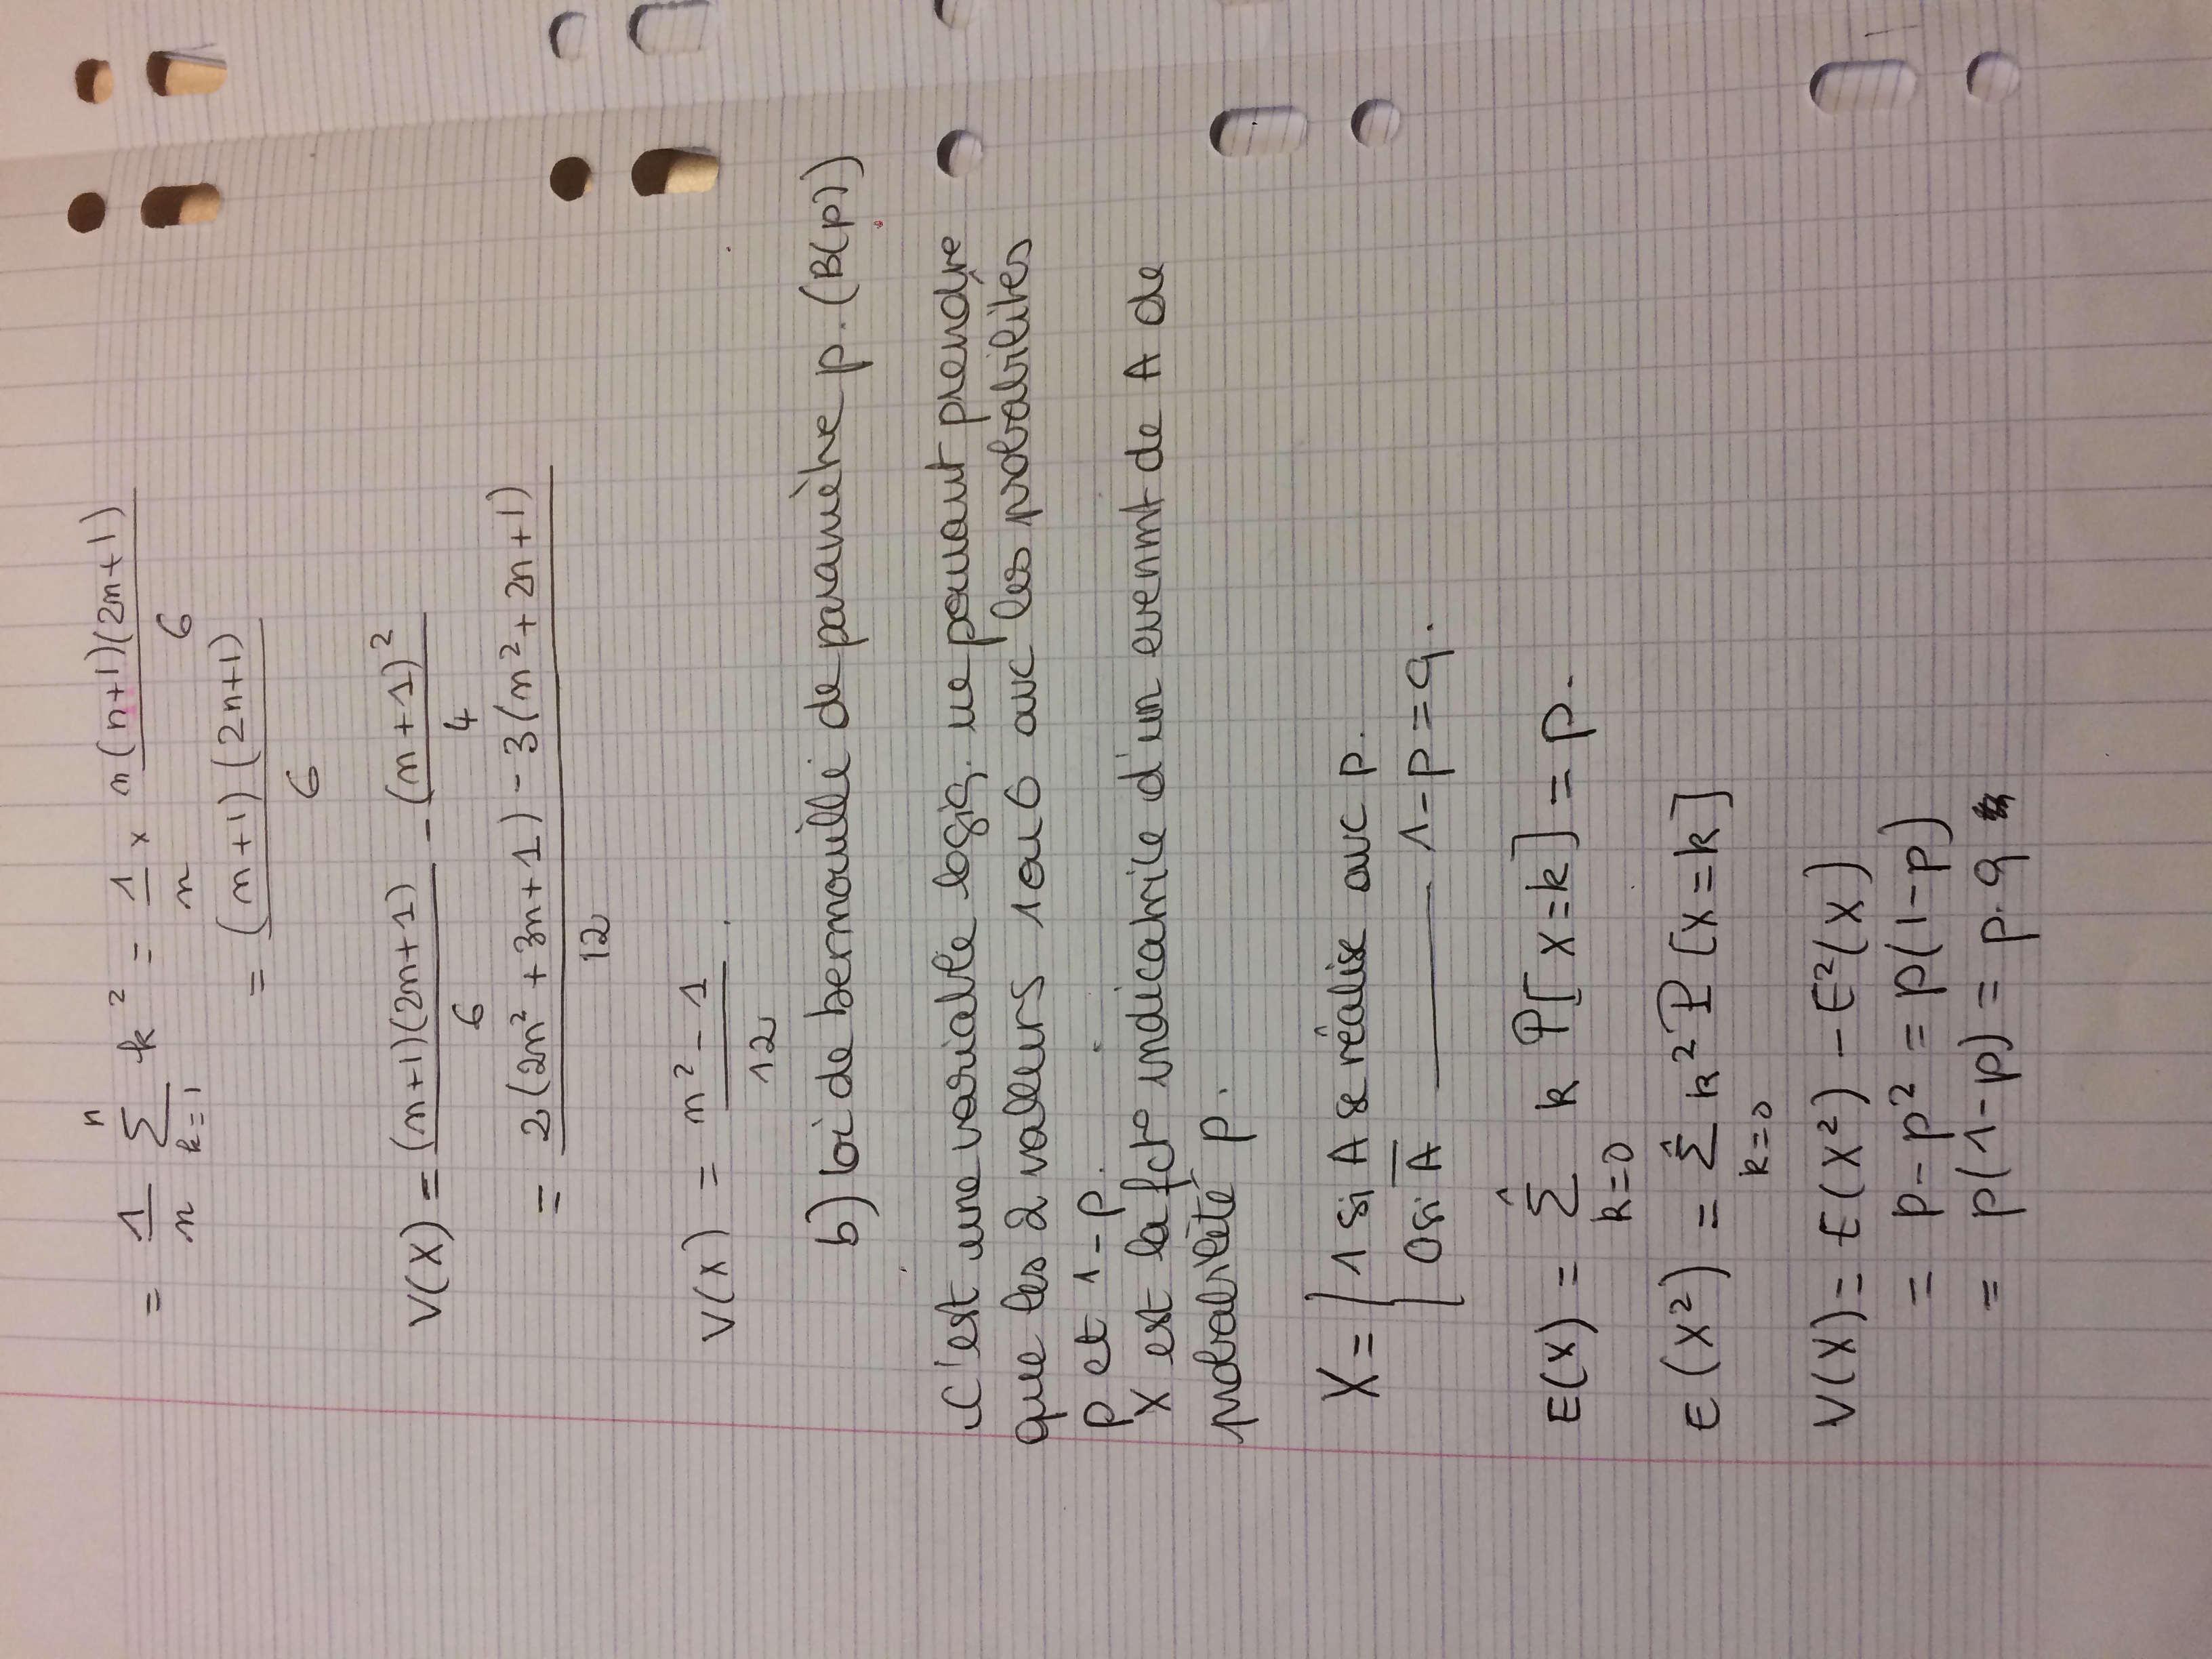 = 1/n Σ_{k=1}^{n} k² = 1/n × n(n+1)(2n+1)/6
= (n+1)(2n+1)/6
V(X) = (n+1)(2n+1)/6 - (n+1)²/4
= (2(2n² + 3n+1) - 3(n²+2n+1))/12
V(X) = (n²-1)/12.
b) loi de bernouille de paramètre p. (B(p))
C'est une variable logiq. ne pouvant prendre
que les 2 valeurs 1 ou 0 avc les probabilités
p et 1-p.
X est la fct° indicatrice d'un evenmt de A de
probabilité p.
X = | 1 si A se réalise avc p.
| 0 si A̅ ——— 1-p = q.
E(X) = Σ_{k=0}^{1} k P[X=k] = p.
E(X²) = Σ_{k=0}^{1} k² P[X=k]
V(X) = E(X²) - E²(X)
= p-p² = p(1-p)
= p(1-p) = p.q